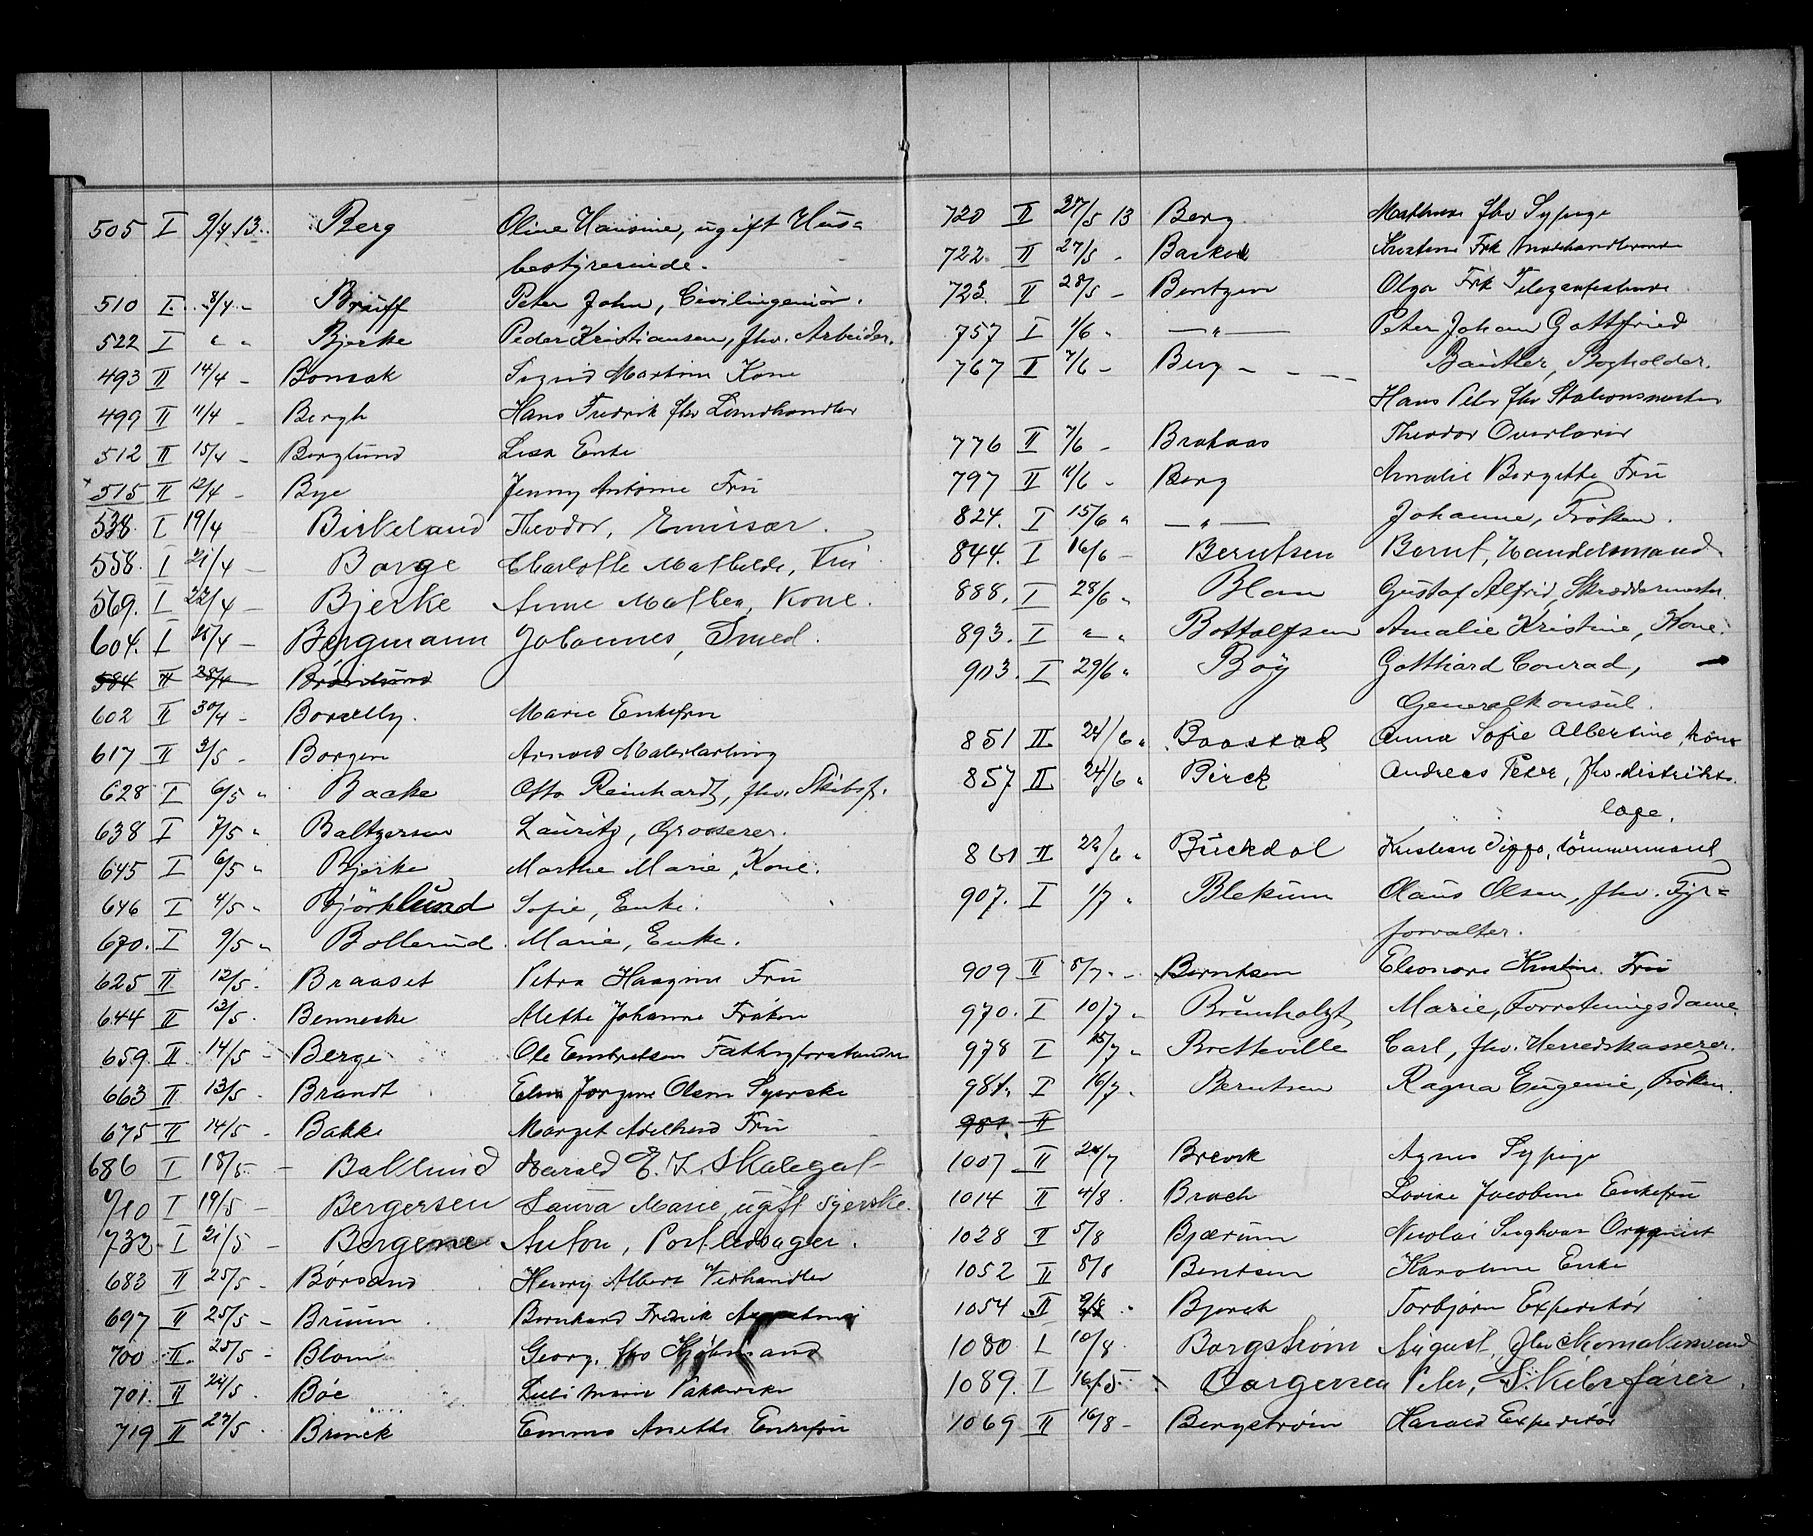 505 I 9/4 13. Berg Oline Hansine, ugift Hus=
bestyrerinde.
510 I 8/4 - Bruff Peter John, Civilingeniør.
522 I " " Bjerke Peder Kristiansen, fhv. Arbeider.
493 II 14/4 - Bonsak Martine Kone
499 II 11/4 - Bergh Hans Fredrik fhv Landhandler
512 II 15/4 - Berglund Lisa Enke
515 II 12/4 - Bye Jenny Antonie Fru
538. I 19/4 Birkeland Theodor, Emisær.
558. I 21/4 - Borge Charlotte Mathilde, Fru
569. I 22/4 - Bjerke Anne Mathea, Kone.
604. I 25/4 - Bergmann Johannes, Smed.
584 II 28/4 Brönlund
602 II 30/4 - Borselly. Marie Enkefru
617 II 3/5 - Borgen Arnold Malerlærling
628 I 6/5 " Baake Otto Reinhardt, fhv. Skibsf.
638 I 7/5 " Baltzersen Lauritz, Grosserer.
645 I 6/5 " Bjerke Marthe Marie, Kone.
646 I 4/5 " Björklund Sofie, Enke.
670. I 9/5 " Bollerud. Marie, Enke.
625 II 12/5. Braaset Petra Haagine Fru
644 II 13/5. Benneche Mette Johanne Frøken
659. II. 14/5 - Berge Ole Embretsen Fattigforstander
663 II 13/5. Brandt Jørgine Olsen Syerske
675 II 14/5 - Bakke Margit Adelheid Fru
686 I 18/5. - Baklund Harald E. I. Skalegat
710 I 19/5 - Bergersen Laura Marie, ugift syerske.
732 I 21/5 - Bergene Anton, Portledsager.
683 II 25/5 - Børsand Henry Albert Vedhandler
697 II 25/5 - Bruun Bernhard Fredrik
700 II 25/5 - Blom Georg, fhv Kjøbmand
701. II 24/5. Böe Marie
719 II 27/5. Brinck Emma Anette Enkefru
720 II 27/5 13 Berg Mathea fhv Sypige
722. II 27/5 - Frk
723 II 28/5 - Bentzen Olga Frk Telegrafistinde
757 I 1/6 " — " — Peter Johan Gottfried
Bautler, Bogholder.
767 I 7/6 - Berg Hans Peter fhv Stationsmester
776 II 7/6 - Brakaas Theodor Overlærer
797 II 11/6 - Berg Amalie Bergitte Fru
824. I 15/6 " — " — Johanne, Frøken.
844. I 16/6 - Berntsen Bernt, Handelsmand
888. I 28/6 " Blom Gustaf Alfrid, Skræddermester.
893. I " " Bottolfsen Amalie Kristine, Kone.
903. I 29/6 " Boÿ Gotthard Conrad,
Generalkonsul.
851 II 24/6 " Baastad Anna Sofie Albertine, kone
857 II 24/6 " Birck Andreas Peter, fhv. distrikts
læge.
861 II 22/6 " Buckdal Kristian tømmermand
907. I 1/7 " Blekum Claus Olsen, fhv. Fyr=
forvalter.
909 II 8/7. - Berntsen Eleonora Kristine Fru
970. I 10/7 " Brunholzt Marie, Forretningsdame
978 I 15/7 " Bretteville Carl, fhv. Herredskasserer.
981. I 16/7. Berntsen Ragna Eugenie, Frøken.
981. II
1007 II 24/7 Brevik Agnes Sypige
1014 II 4/8. Broch Lovise Jacobine Enkefru
1028 II 5/8 Bjærum Nicolai
1052 II 8/8 Bentsen Karoline Enke
1054 II 9/8 " Bjerck Torbjørn Expeditør
1080 I 10/8. Borgstrøm August, fhv
1089. I 16/5 Borgersen Peter, Skibsfører.
1069 II 16/8 - Bergstrøm Harald Expeditør